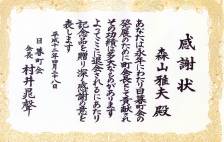 感謝状
森山雅夫殿
あなたは永年にわたり日暮町会の
発展のために町会長として貢献され
その功績は多大なものがあります
よってここに退会されるにあたり
記念品を贈り深く感謝の意を
表します
平成十三年四月二十八日
日暮町会
会長 村井晃聲